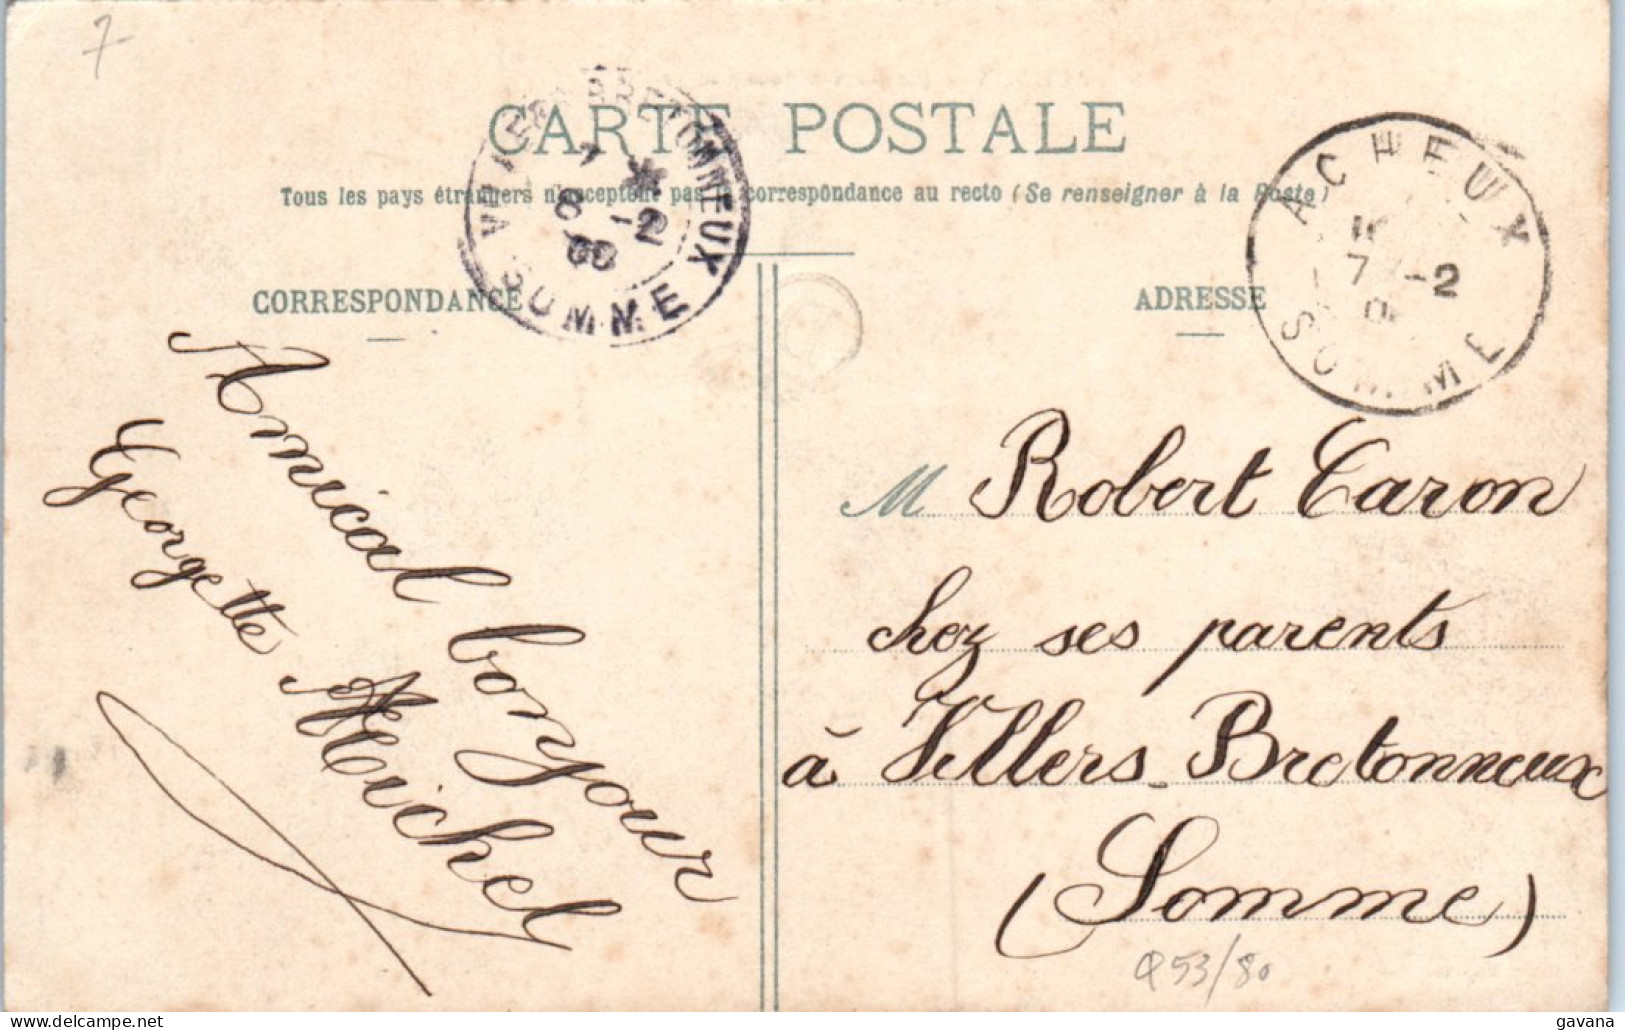 7
CARTE POSTALE
Tous les pays étrangers n'acceptent pas la correspondance au recto (Se renseigner à la Poste)
VILLERS BRETONNEUX
7 *
6 -2
SOMME
ACHEUX
7 -2
SOMME
CORRESPONDANCE
Amical bonjour
Georgette Michel
ADRESSE
M Robert Caron
chez ses parents
à Villers-Bretonneux
(Somme)
Q53/80
delcampe.net
gavana